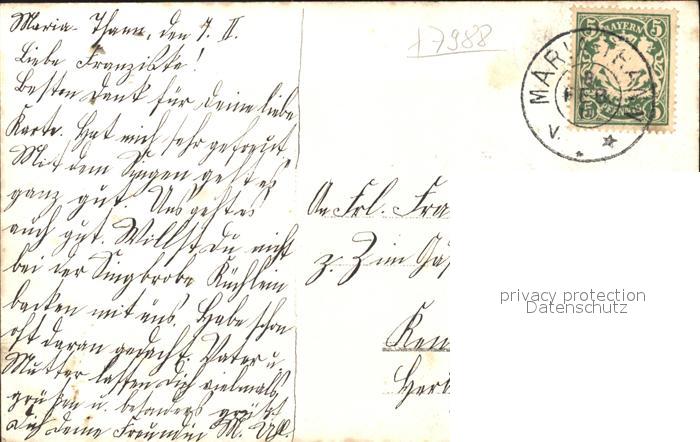 Maria-Thann, den 7. II.
Liebe Franziska!
Besten Dank für deine liebe
Karte. Hat mich sehr gefreut.
Mit dem Singen geht es
ganz gut. Uns geht es
auch gut. Willst du nicht
bei der Singprobe Küchlein
backen mit uns. Habe schon
oft daran gedacht. Vater u.
Mutter lassen dich vielmals
grüßen u. besonders grüßt
dich deine Freundin M.
17988
5 BAYERN 5
MARIA THANN
8 FEB
V.
5 5
An Frl. Fra
z. Zim
Kem
privacy protection
Datenschutz